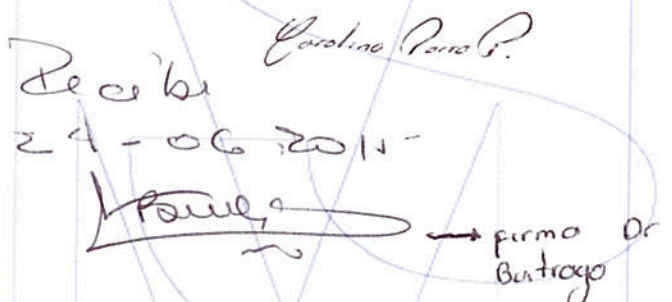 Carolina Parra P.
Recibi
24-06 2015
→ firma Dr
Buitrago